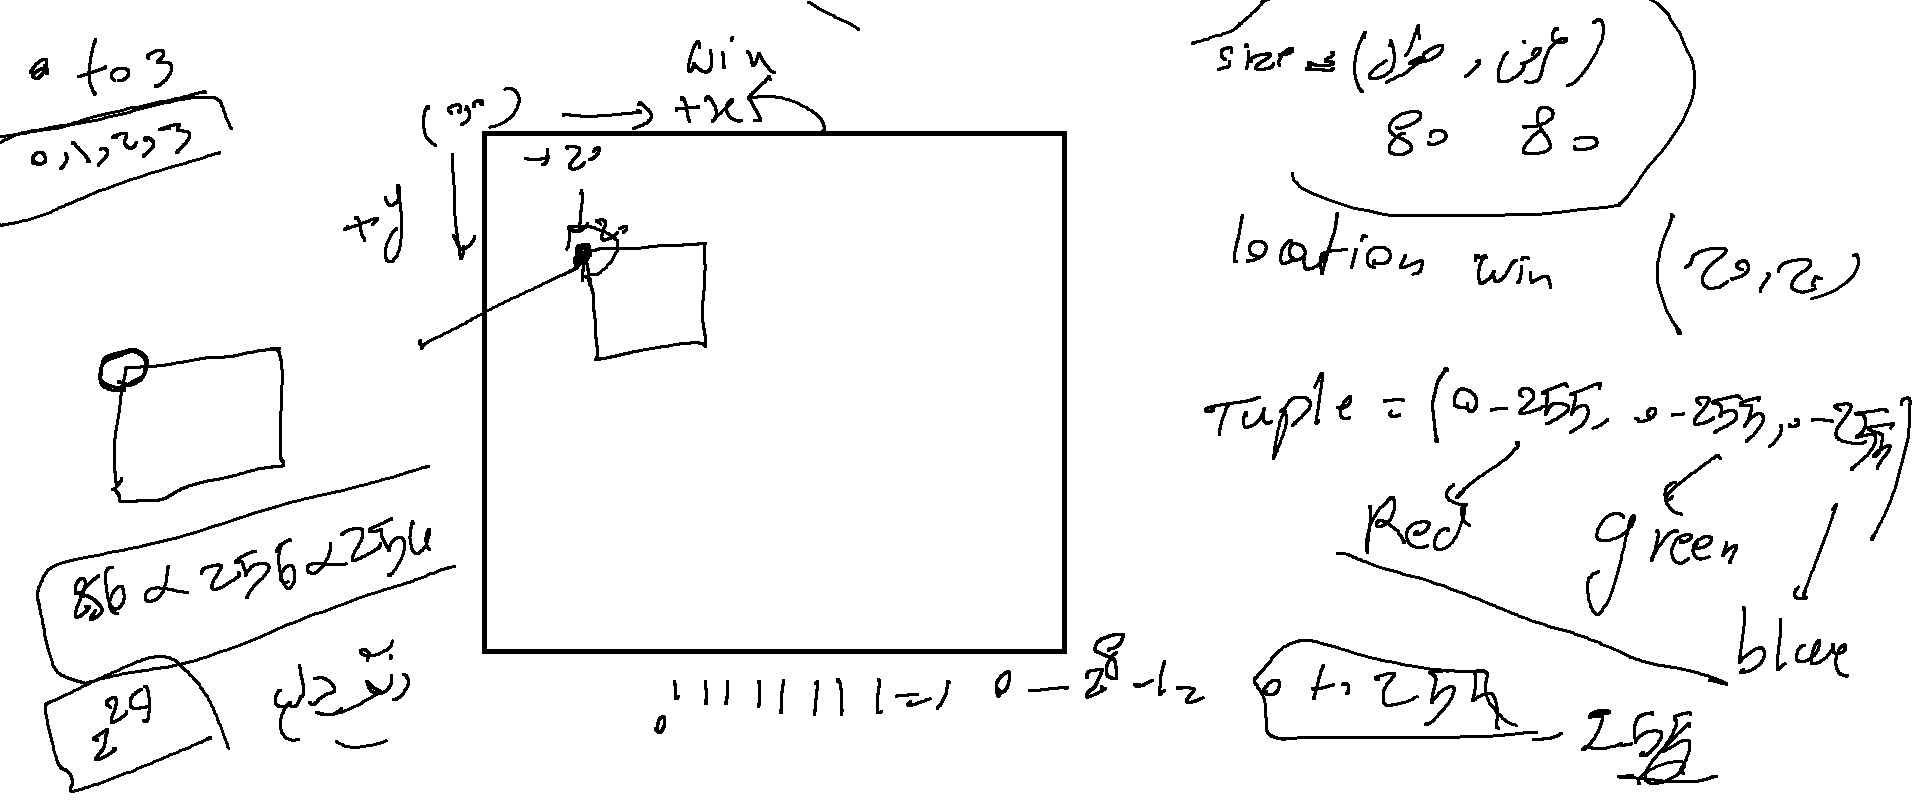 0 to 3
0,1,2,3
win
+x
+y
→ 20
20
size = (طول , عرض)
80 80
location win (20,20)
Tuple = (0-255, 0-255, 0-255)
Red green blue
256 x 256 x 256
2^24
تعداد رنگ
0 11111111 = 1 0 - 2^8 - 1 =
0 to 255
255